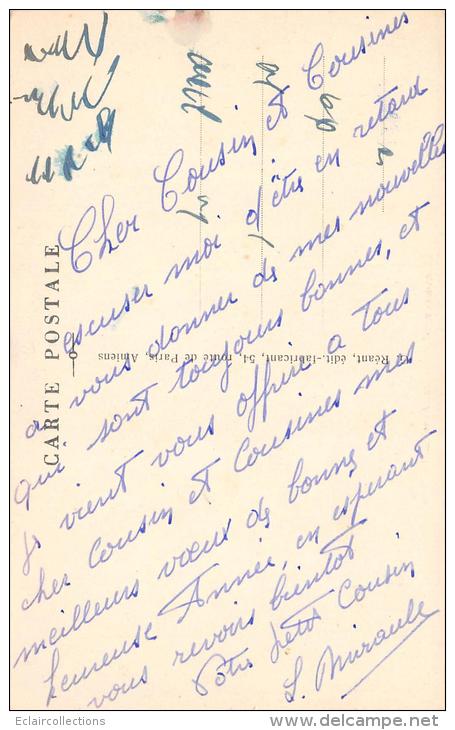 Cher Cousin et Cousines
escuser moi d'être en retard
a vous donner de mes nouvelles
qui sont toujours bonnes, et
je vient vous offrire a tous
cher cousin et cousines mes
meilleurs vœux de bonne et
heureuse Année, en esperant
vous revoir bientot
Votre petit Cousin
CARTE POSTALE
Réant, édit.-fabricant, 54, route de Paris, Amiens
Eclaircollections